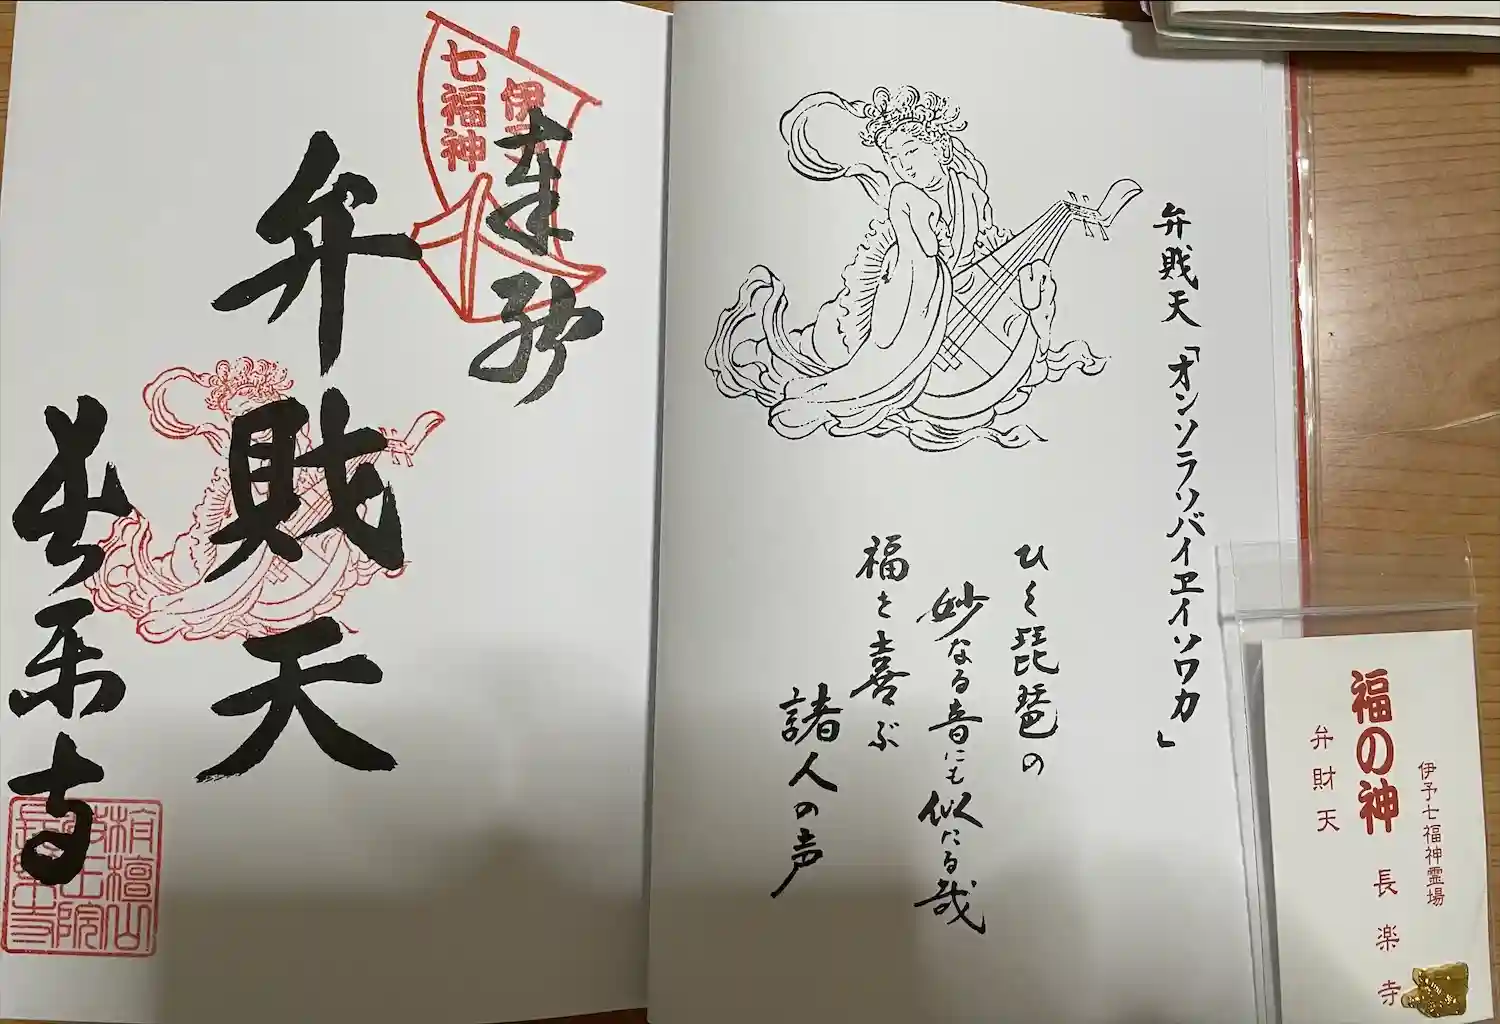 弁財天「オンソラソバイヱイソワカ」
ひく琵琶の
妙なる音にも似たる哉
福を喜ぶ
諸人の声
伊
七福神
奉拝
弁財天
長楽寺
栴檀山
院
長楽寺
伊予七福神霊場
福の神 長楽寺
弁財天